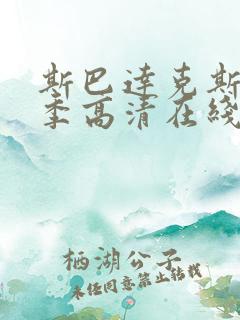 斯巴达克斯
季高清在线
栖湖公子
未经同意禁止转载